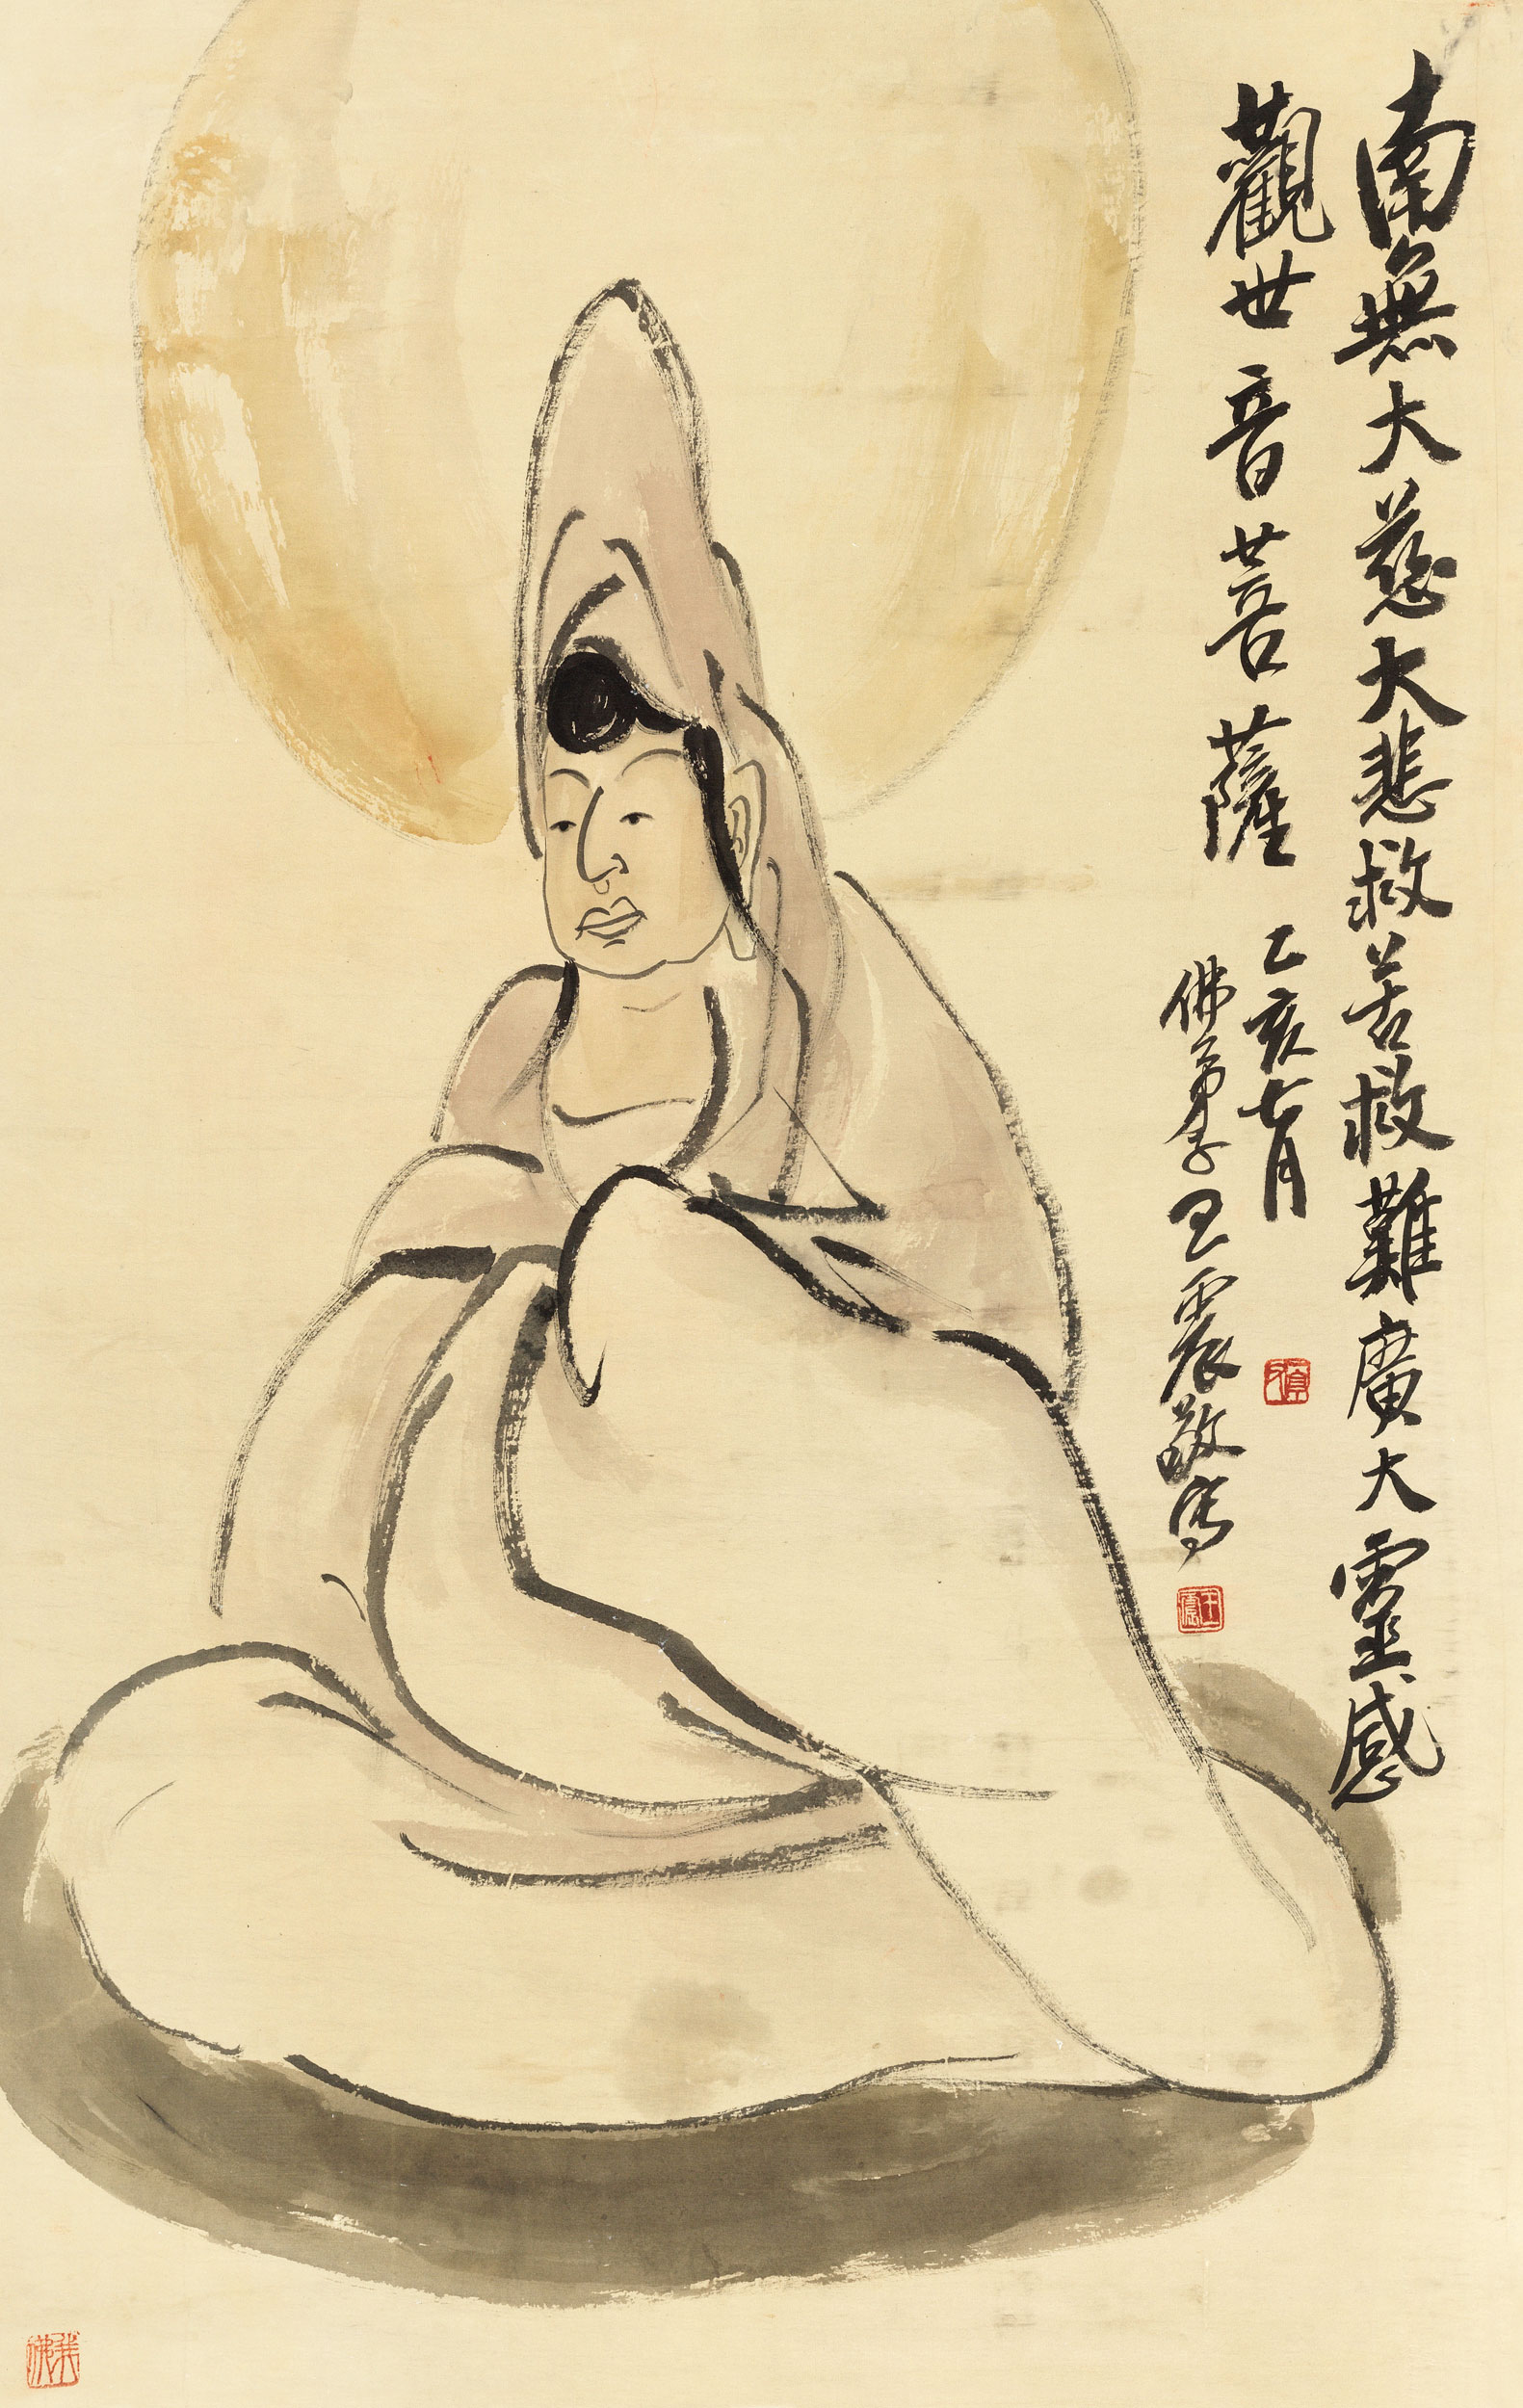 南無大慈大悲救苦救難廣大靈感
觀世音菩薩
乙亥七月
佛弟子王震敬寫
王震